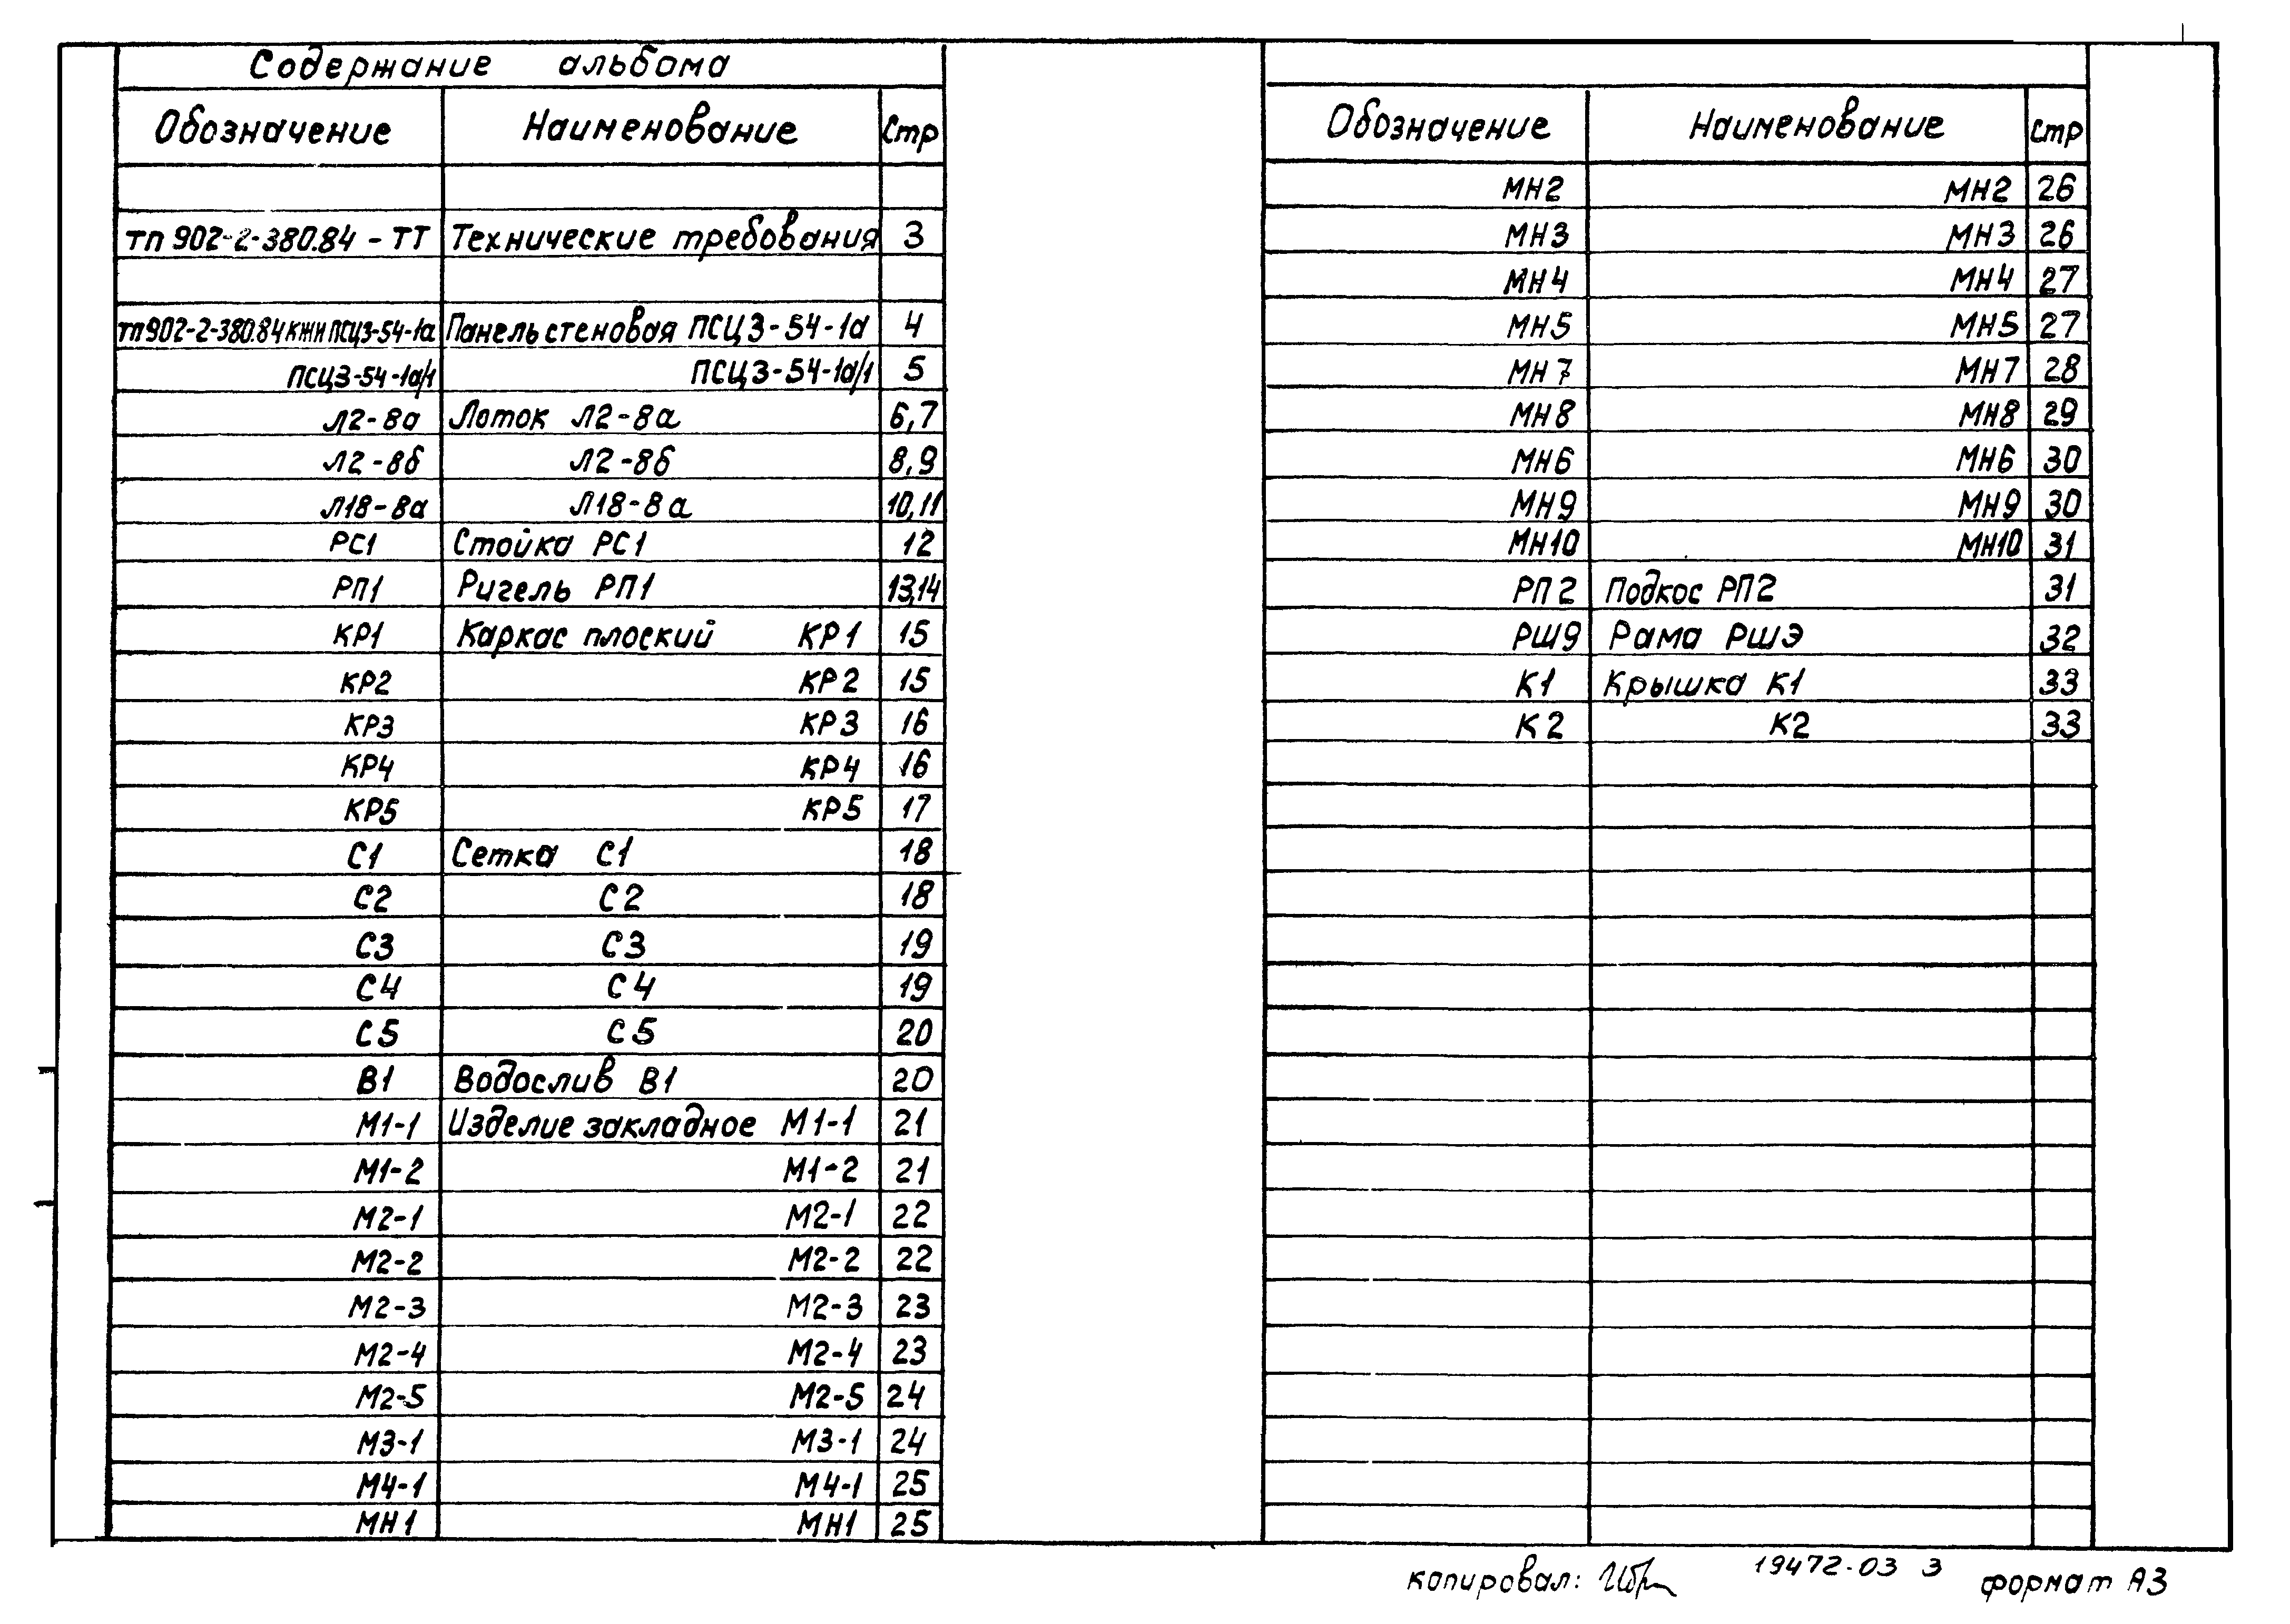 Содержание альбома
Обозначение Наименование Стр
тп 902-2-380.84 - ТТ Технические требования 3
тп 902-2-380.84 КЖИ ПСЦ3-54-1а Панель стеновая ПСЦ3-54-1а 4
ПСЦ3-54-1а/1 ПСЦ3-54-1а/1 5
Л2-8а Лоток Л2-8а 6,7
Л2-8б Л2-8б 8,9
Л18-8а Л18-8а 10,11
РС1 Стойка РС1 12
РП1 Ригель РП1 13,14
КР1 Каркас плоский КР1 15
КР2 КР2 15
КР3 КР3 16
КР4 КР4 16
КР5 КР5 17
С1 Сетка С1 18
С2 С2 18
С3 С3 19
С4 С4 19
С5 С5 20
В1 Водослив В1 20
М1-1 Изделие закладное М1-1 21
М1-2 М1-2 21
М2-1 М2-1 22
М2-2 М2-2 22
М2-3 М2-3 23
М2-4 М2-4 23
М2-5 М2-5 24
М3-1 М3-1 24
М4-1 М4-1 25
МН1 МН1 25
Обозначение Наименование Стр
МН2 МН2 26
МН3 МН3 26
МН4 МН4 27
МН5 МН5 27
МН7 МН7 28
МН8 МН8 29
МН6 МН6 30
МН9 МН9 30
МН10 МН10 31
РП2 Подкос РП2 31
РШ9 Рама РШЭ 32
К1 Крышка К1 33
К2 К2 33
копировал: 19472-03 3 формат А3